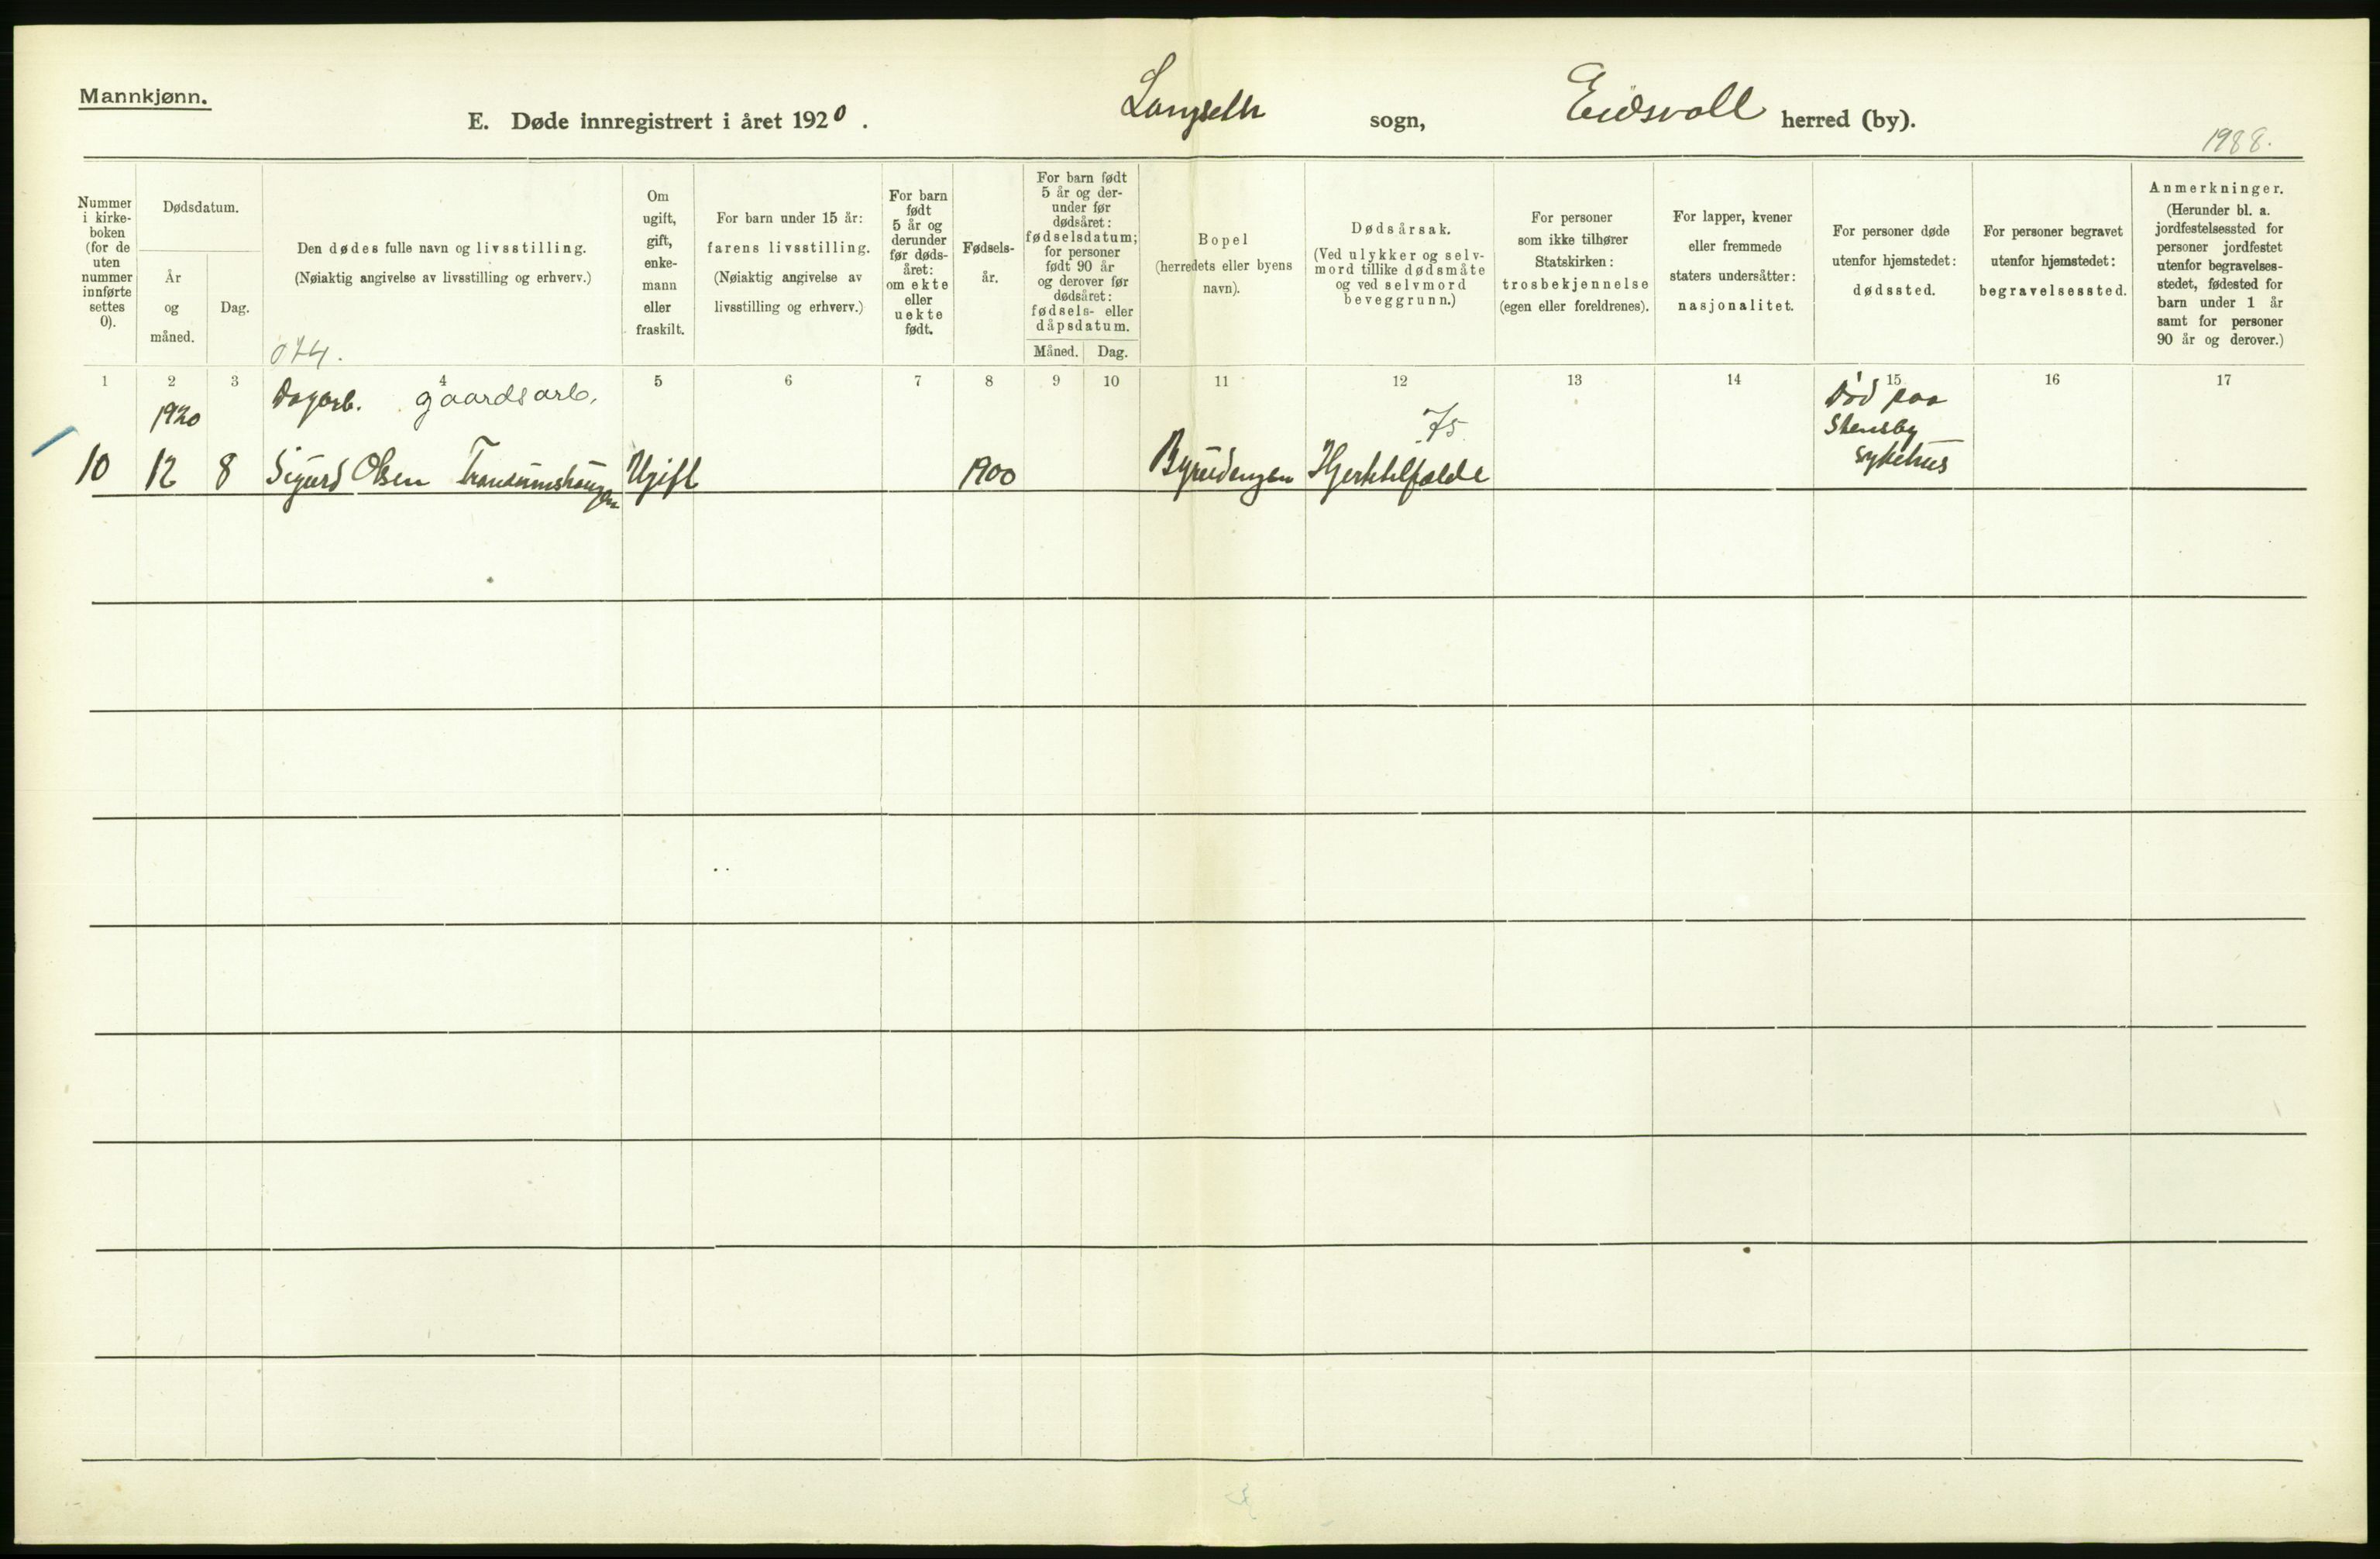 Mannkjønn.
E. Døde innregistrert i året 1920. Langseth sogn, Eidsvoll herred (by).
1988.
Nummer
i kirke-
boken
(for de
uten
nummer
innførte
settes
0).
Dødsdatum.
År
og
måned.
Dag.
Den dødes fulle navn og livsstilling.
(Nøiaktig angivelse av livsstilling og erhverv.)
074.
Om
ugift,
gift,
enke-
mann
eller
fraskilt.
For barn under 15 år:
farens livsstilling.
(Nøiaktig angivelse av
livsstilling og erhverv.)
For barn
født
5 år og
derunder
før døds-
året:
om ekte
eller
uekte
født.
Fødsels-
år.
For barn født
5 år og der-
under før
dødsåret:
fødselsdatum;
for personer
født 90 år
og derover før
dødsåret:
fødsels- eller
dåpsdatum.
Måned. Dag.
Bopel
(herredets eller byens
navn).
Dødsårsak.
(Ved ulykker og selv-
mord tillike dødsmåte
og ved selvmord
beveggrunn.)
For personer
som ikke tilhører
Statskirken:
trosbekjennelse
(egen eller foreldrenes).
For lapper, kvener
eller fremmede
staters undersåtter:
nasjonalitet.
For personer døde
utenfor hjemstedet:
dødssted.
For personer begravet
utenfor hjemstedet:
begravelsessted.
Anmerkninger.
(Herunder bl. a.
jordfestelsessted for
personer jordfestet
utenfor begravelses-
stedet, fødested for
barn under 1 år
samt for personer
90 år og derover.)
1 2 3 4 5 6 7 8 9 10 11 12 13 14 15 16 17
1920 Dagarb. gaardsarb. 75 Død paa
Stensby
sykehus
10 12 8 Sigurd Olsen Trandumshaugen Ugift 1900 Hjerteklfeilde